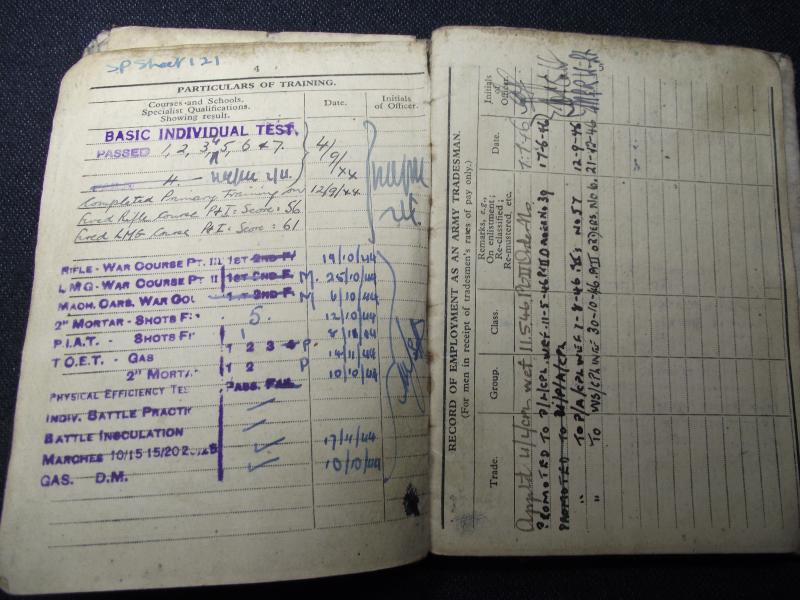 SP Sheet 121
4
PARTICULARS OF TRAINING.
Courses and Schools.
Specialist Qualifications.
Showing result.
Date.
Initials
of Officer.
BASIC INDIVIDUAL TEST.
PASSED 1, 2, 3, 4, 5, 6 & 7.
4/9/44
Completed Primary Training on 12/9/44
Fired Rifle Course Pt I: Score: 56
Fired LMG Course Pt I: Score: 61
RIFLE - WAR COURSE PT. III 1ST 2ND F. 19/10/44
L M G - WAR COURSE PT II 1ST 2ND F. M. 25/10/44
MACH. CARB. WAR COU 1ST 2ND F M 6/10/44
2" MORTAR - SHOTS FI 5. 12/10/44
P.I.A.T. - SHOTS FI 1
T.O.E.T. - GAS 1 2 3 4 P. 14/11/44
2" MORTA 1 2 P 10/10/44
PHYSICAL EFFICIENCY TES PASS. FAIL.
INDIV. BATTLE PRACTI
BATTLE INOCULATION 17/4/44
MARCHES 10/15 15/20
GAS. D.M. 10/10/44
5
RECORD OF EMPLOYMENT AS AN ARMY TRADESMAN.
(For men in receipt of tradesmen's rates of pay only.)
Trade.
Group.
Class.
Remarks, e.g.,
On enlistment;
Re-classified;
Re-mustered, etc.
Date.
Initials
of
Officer.
PROMOTED TO P/A/CPL WEF 11-5-46 PII ORDER No 39 17-6-46
PROMOTED TO
" TO P/A/CPL WEF 1-8-46 No 57 12-9-46
" TO WS/CPL WEF 30-10-46 PII ORDERS No 6. 21-12-46